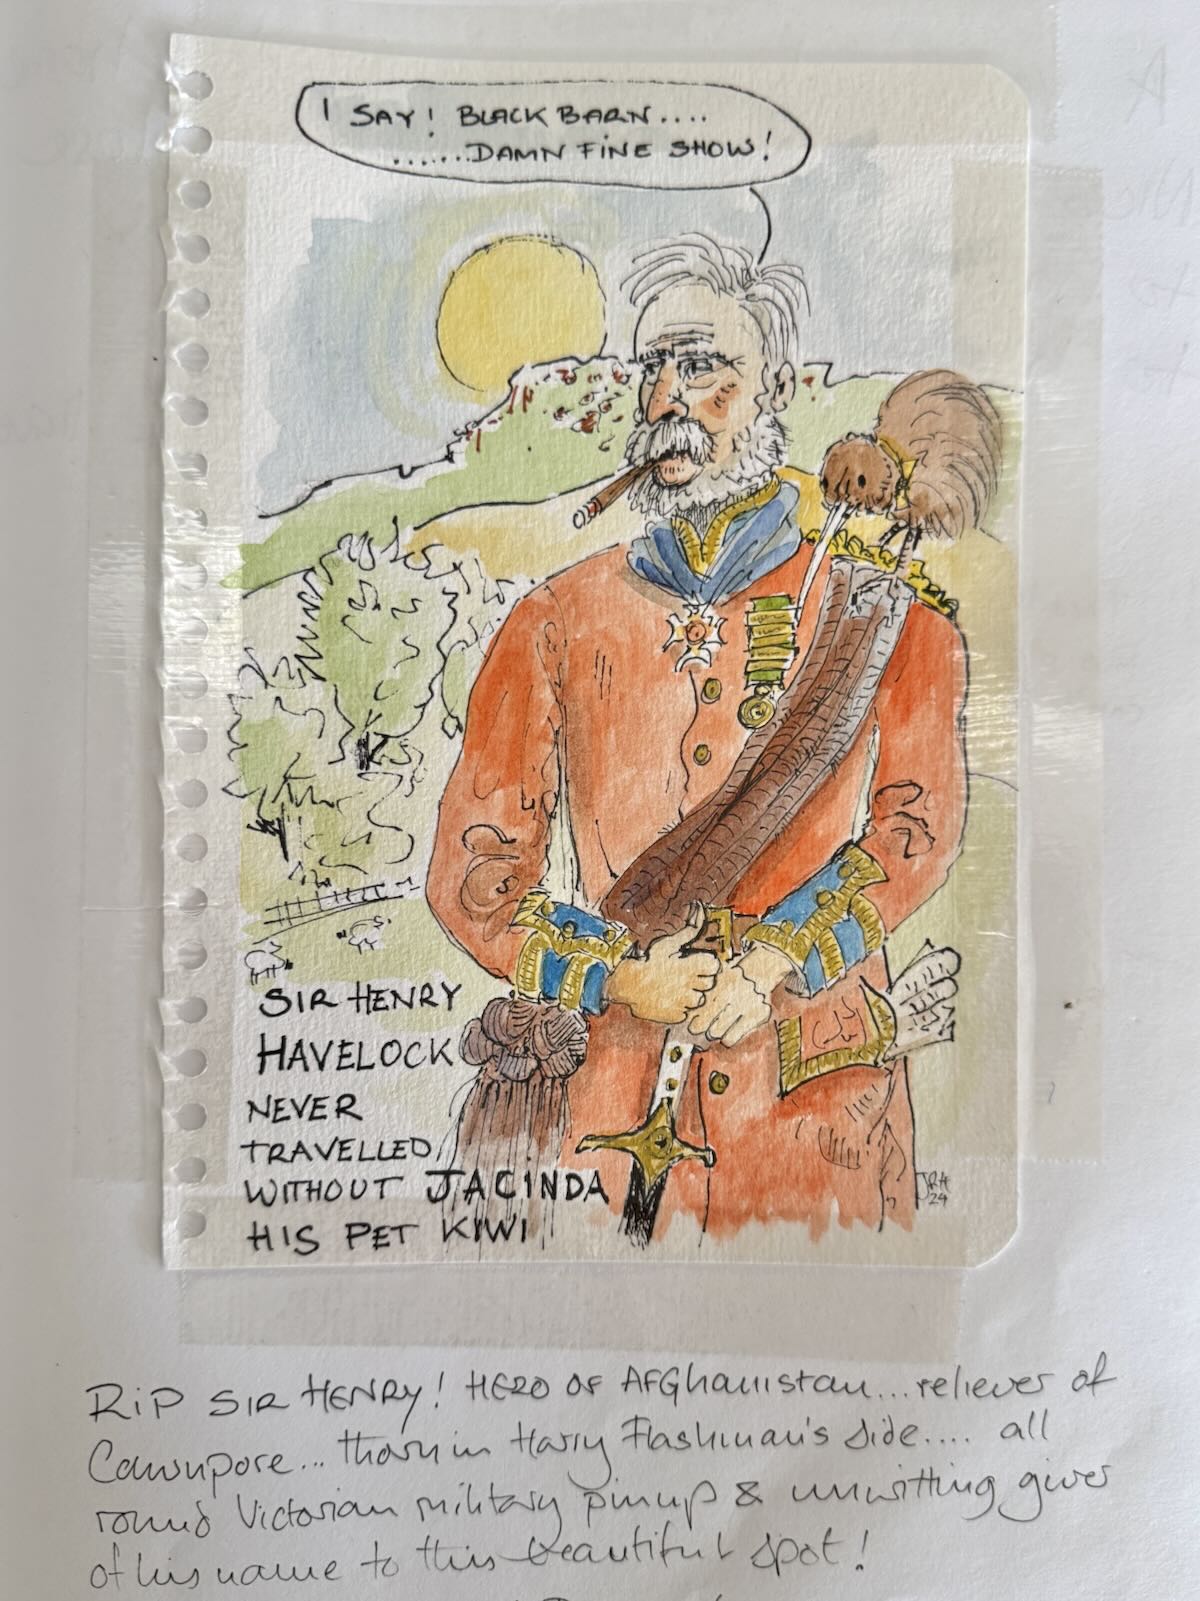 I SAY! BLACK BARN....
.......DAMN FINE SHOW!
SIR HENRY
HAVELOCK
NEVER
TRAVELLED
WITHOUT JACINDA
HIS PET KIWI
JRH
24
RIP SIR HENRY! HERO OF AFGHanistan... reliever of
Cawnpore... thorn in Harry Flashman's side.... all
round Victorian military pinup & unwitting giver
of his name to this beautiful spot!